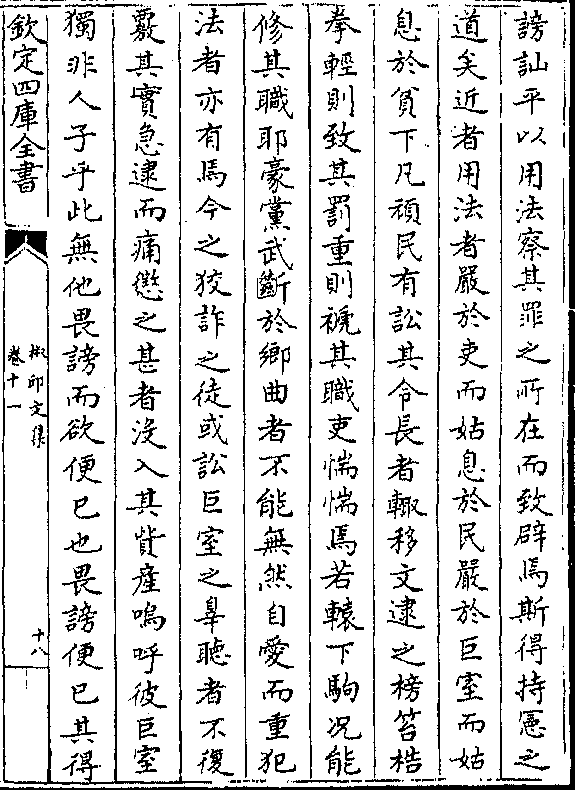 謗訕乎以用法察其罪之所在而致辟焉斯得持憲之
道矣近者用法者嚴於吏而姑息於民嚴於巨室而姑
息於貧下凡頑民有訟其令長者輙移文逮之榜笞梏
拳輕則致其罰重則褫其職吏惴惴焉若轅下駒况能
修其職耶豪黨武斷於鄉曲者不能無然自愛而重犯
法者亦有焉今之狡詐之徒或訟巨室之辠聽者不復
覈其實急逮而痛懲之甚者没入其貲產嗚呼彼巨室
獨非人子乎此無他畏謗而欲便已也畏謗便已其得
欽定四庫全書
椒邱文集
卷十一
十八